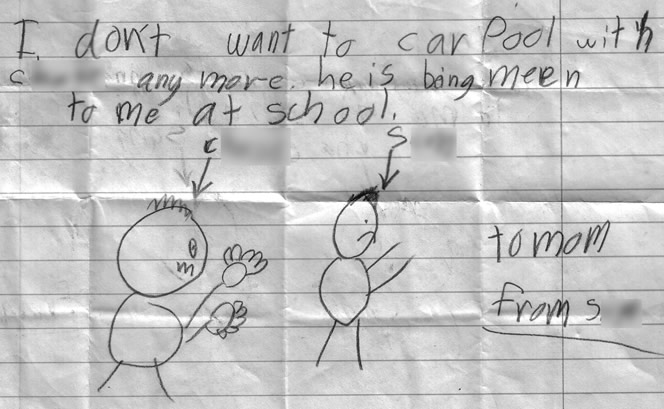 I don't want to car Pool with
c any more. he is being meen
to me at school.
c
S
to mom
from s